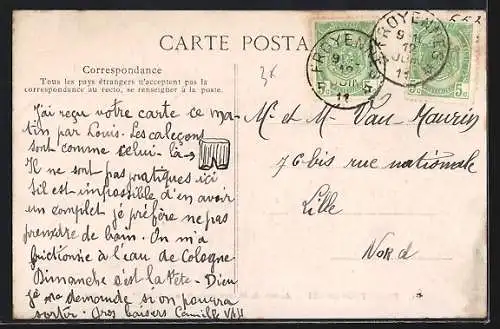 CARTE POSTA
Correspondance
Tous les pays étrangers n'acceptent pas la
correspondance au recto, se renseigner à la poste.
J'ai reçu votre carte ce ma-
tin par Louis. Les caleçons
sont comme celui-là →
Il ne sont pas pratiques ici
s'il est impossible d'en avoir
un complet je préfère ne pas
prendre de bain. On m'a
frictionné à l'eau de Cologne
Dimanche c'est la fête. Dieu
je me demande si on pourra
sortir. Gros baisers Camille
3€
FROYENNES
11
5c 5c
FROYENNES
11
5c 5c
M. et M. Van-Maurin
76 bis rue nationale
Lille
Nord